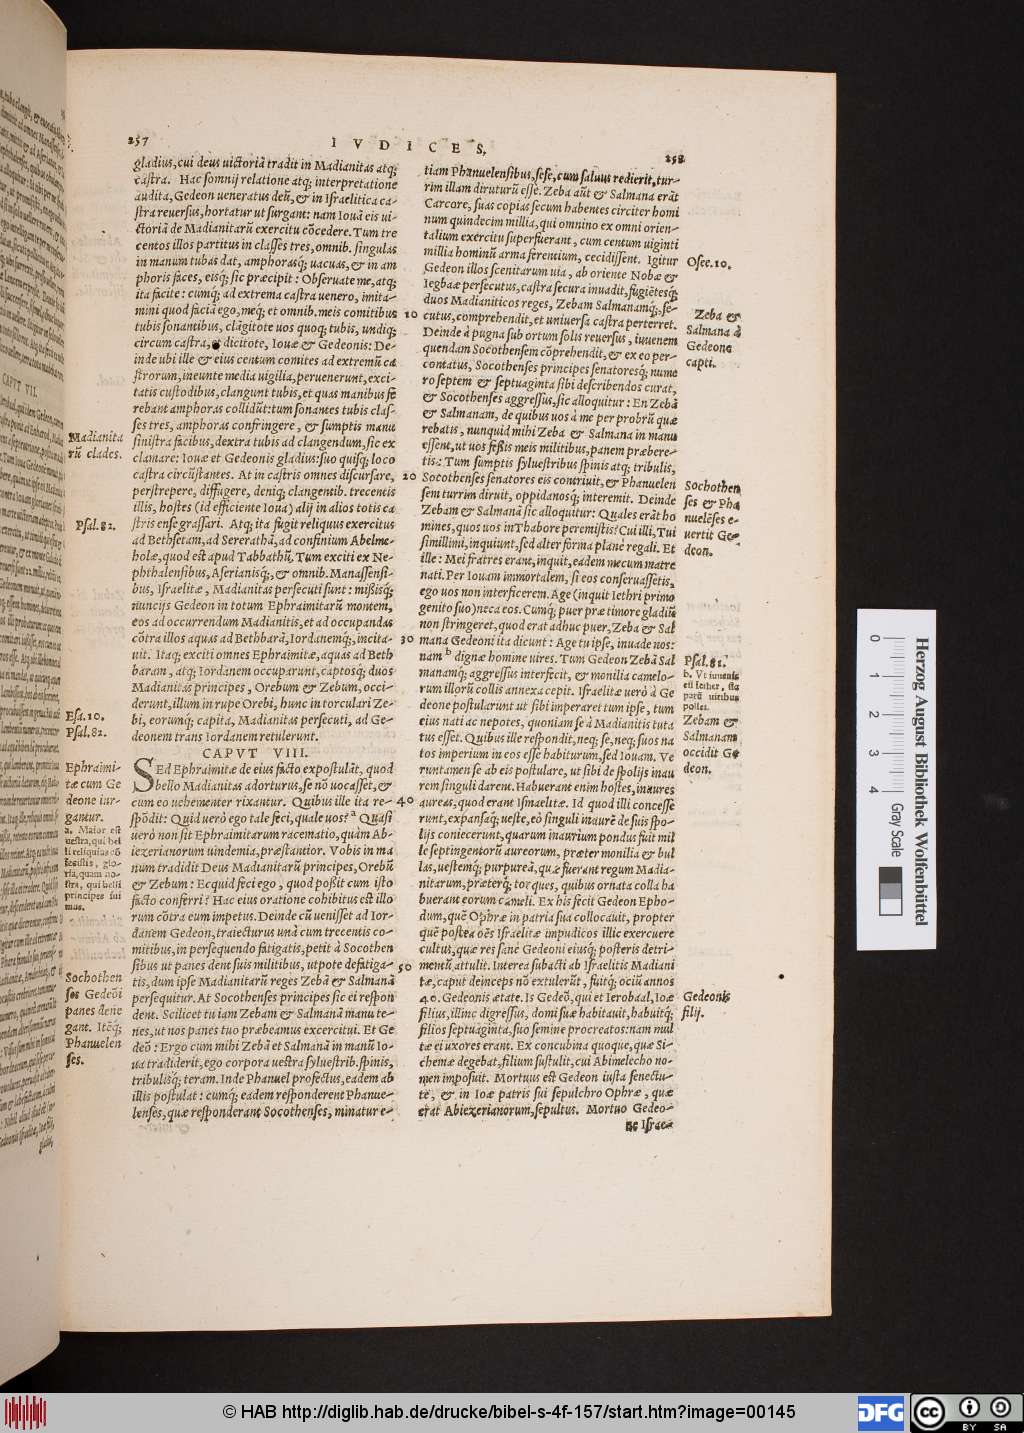 257
IVDICES.
258
gladius, cui deus uictoriā tradit in Madianitas atq;
castra. Hac somnij relatione atq; interpretatione
audita, Gedeon ueneratus deū, & in Israelitica ca-
stra reuersus, hortatur ut surgant: nam Ioua eis ui-
ctoriā de Madianitarū exercitu cōcedere. Tum tre
centos illos partitus in classes tres, omnib. singulas
in manum tubas dat, amphorasq; uacuas, & in am
phoris faces, eisq; sic præcipit: Obseruate me, atq;
ita facite: cumq; ad extrema castra uenero, imita-
mini quod faciā ego, meq; et omnib. meis comitibus
tubis sonantibus, clāgitote uos quoq; tubis, undiq;
circum castra, & dicitote, Iouæ & Gedeonis: De-
inde ubi ille & eius centum comites ad extremū ca
strorum, ineunte media uigilia, peruenerunt, exci-
tatis custodibus, clangunt tubis, et quas manibus fe
rebant amphoras collidūt: tum sonantes tubis clas-
ses tres, amphoras confringere, & sumptis manu
sinistra facibus, dextra tubis ad clangendum, sic ex
clamare: Iouæ et Gedeonis gladius: suo quisq; loco
castra circūstantes. At in castris omnes discursare,
perstrepere, diffugere, deniq; clangentib. trecentis
illis, hostes (id efficiente Ioua) alij in alios totis ca
stris ense grassari. Atq; ita fugit reliquus exercitus
ad Bethsetam, ad Sererathā, ad confinium Abelme-
holæ, quod est apud Tabbathū, Tum exciti ex Ne-
phthalensibus, Aserianisq;, & omnib. Manassensi-
bus, Israelitæ, Madianitas persecuti sunt: mißisq;
nuncijs Gedeon in totum Ephraimitarū montem,
eos ad occurrendum Madianitis, et ad occupandas
cōtra illos aquas ad Bethbarā, Iordanemq;, incita-
uit. Itaq; exciti omnes Ephraimitæ, aquas ad Beth
baram, atq; Iordanem occuparunt, captosq; duos
Madianitas principes, Orebum & Zebum, occi-
derunt, illum in rupe Orebi, hunc in torculari Ze-
bi, eorumq; capita, Madianitas persecuti, ad Ge-
deonem trans Iordanem retulerunt.
CAPVT VIII.
SEd Ephraimitæ de eius facto expostulāt, quod
bello Madianitas adorturus, se nō uocasset, &
cum eo uehementer rixantur. Quibus ille ita re-
spōdit: Quid uerò ego tale feci, quale uos? a Quasi
uerò non sit Ephraimitarum racematio, quàm Ab-
iezerianorum uindemia, præstantior. Vobis in ma
num tradidit Deus Madianitarū principes, Orebū
& Zebum: Ecquid feci ego, quod poßit cum isto
facto conferri? Hac eius oratione cohibitus est illo
rum cōtra eum impetus. Deinde cū uenisset ad Ior-
danem Gedeon, traiecturus unà cum trecentis co-
mitibus, in persequendo fatigatis, petit à Socothen
sibus ut panes dent suis militibus, utpote defatiga-
tis, dum ipse Madianitarū reges Zebā & Salmanā
persequitur. At Socothenses principes sic ei respon
dent. Scilicet tu iam Zebam & Salmanā manu te-
nes, ut nos panes tuo præbeamus exercitui. Et Ge
deō: Ergo cum mihi Zebā et Salmanā in manū Io-
ua tradiderit, ego corpora uestra syluestrib. spinis,
tribulisq; teram. Inde Phanuel profectus, eadem ab
illis postulat: cumq; eadem responderent Phanue-
lenses, quæ responderant Socothenses, minatur e-
Madianita
rū clades.
Psal. 82.
Esa. 10.
Psal. 82.
Ephraimi-
tæ cum Ge
deone iur-
gantur.
a. Maior est
uestra, qui bel
li reliquias cō
fecistis, glo-
ria, quam no-
stra, qui belli
principes sui
mus.
Sochothen
ses Gedeōi
panes dene
gant. Itēq;
Phanuelen
ses.
10
20
30
40
50
tiam Phanuelensibus, sese, cum saluus redierit, tur-
rim illam diruturū esse. Zeba aūt & Salmana erāt
Carcore, suas copias secum habentes circiter homi
num quindecim millia, qui omnino ex omni orien-
talium exercitu superfuerant, cum centum uiginti
millia hominū arma ferentium, cecidissent. Igitur
Gedeon illos scenitarum uia, ab oriente Nobæ &
Iegbaæ persecutus, castra secura inuadit, fugiētesq;
duos Madianiticos reges, Zebam Salmanamq;, se-
cutus, comprehendit, et uniuersa castra perterret.
Deinde à pugna sub ortum solis reuersus, iuuenem
quendam Socothensem cōprehendit, & ex eo per-
contatus, Socothenses principes senatoresq; nume
ro septem & septuaginta sibi describendos curat,
& Socothenses aggressus, sic alloquitur: En Zebā
& Salmanam, de quibus uos à me per probrū quæ
rebatis, nunquid mihi Zeba & Salmana in manu
essent, ut uos feßis meis militibus, panem præbere-
tis: Tum sumptis syluestribus spinis atq; tribulis,
Socothenses senatores eis contriuit, & Phanuelen
sem turrim diruit, oppidanosq; interemit. Deinde
Zebam & Salmanā sic alloquitur: Quales erāt ho
mines, quos uos in Thabore peremistis? Cui illi, Tui
simillimi, inquiunt, sed alter forma planè regali. Et
ille: Mei fratres erant, inquit, eadem mecum matre
nati. Per Iouam immortalem, si eos conseruassetis,
ego uos non interficerem. Age (inquit Iethri primo
genito suo) neca eos. Cumq; puer præ timore gladiū
non stringeret, quod erat adhuc puer, Zeba & Sal
mana Gedeoni ita dicunt: Age tu ipse, inuade nos:
nam b dignæ homine uires. Tum Gedeon Zebā Sal
manamq; aggressus interfecit, & monilia camelo-
rum illorū collis annexa cepit. Israelitæ uerò à Ge
deone postularunt ut sibi imperaret tum ipse, tum
eius nati ac nepotes, quoniam se à Madianitis tuta
tus esset. Quibus ille respondit, neq; se, neq; suos na
tos imperium in eos esse habiturum, sed Iouam. Ve
runtamen se ab eis postulare, ut sibi de spolijs inau
rem singuli darent. Habuerant enim hostes, inaures
aureas, quod erant Ismaelitæ. Id quod illi concesse
runt, expansaq; ueste, eò singuli inaurē de suis spo-
lijs coniecerunt, quarum inaurium pondus fuit mil
le septingentorū aureorum, præter monilia & bul
las, uestemq; purpureā, quæ fuerant regum Madia-
nitarum, præterq; torques, quibus ornata colla ha
buerant eorum cameli. Ex his fecit Gedeon Epho-
dum, quē Ophræ in patria sua collocauit, propter
quē postea oēs Israelitæ impudicos illic exercuere
cultus, quæ res sanè Gedeoni eiusq; posteris detri-
mentū, attulit. Interea subacti ab Israelitis Madiani
tæ, caput deinceps nō extulerūt, fuitq; ociū annos
40. Gedeonis ætate. Is Gedeō, qui et Ierobaal, Ioæ
filius, illinc digressus, domi suæ habitauit, habuitq;
filios septuaginta, suo semine procreatos: nam mul
tæ ei uxores erant. Ex concubina quoque, quæ Si-
chemæ degebat, filium sustulit, cui Abimelecho no-
men imposuit. Mortuus est Gedeon iusta senectu-
te, & in Ioæ patris sui sepulchro Ophræ, quæ
erat Abiezerianorum, sepultus. Mortuo Gedeo-
ne Israe-
Osee. 10.
Zeba &
Salmana à
Gedeone
capti.
Sochothen
ses & Pha
nuelēses e-
uertit Ge-
deon.
Psal. 81.
b. Vt iuuenis
eū Iether, sta
parū uiribus
pollet.
Zebam &
Salmanam
occidit Ge
deon.
Gedeonis
filij.
0 1 2 3 4
Herzog August Bibliothek Wolfenbüttel
Gray Scale
© HAB http://diglib.hab.de/drucke/bibel-s-4f-157/start.htm?image=00145
DFG
cc BY SA